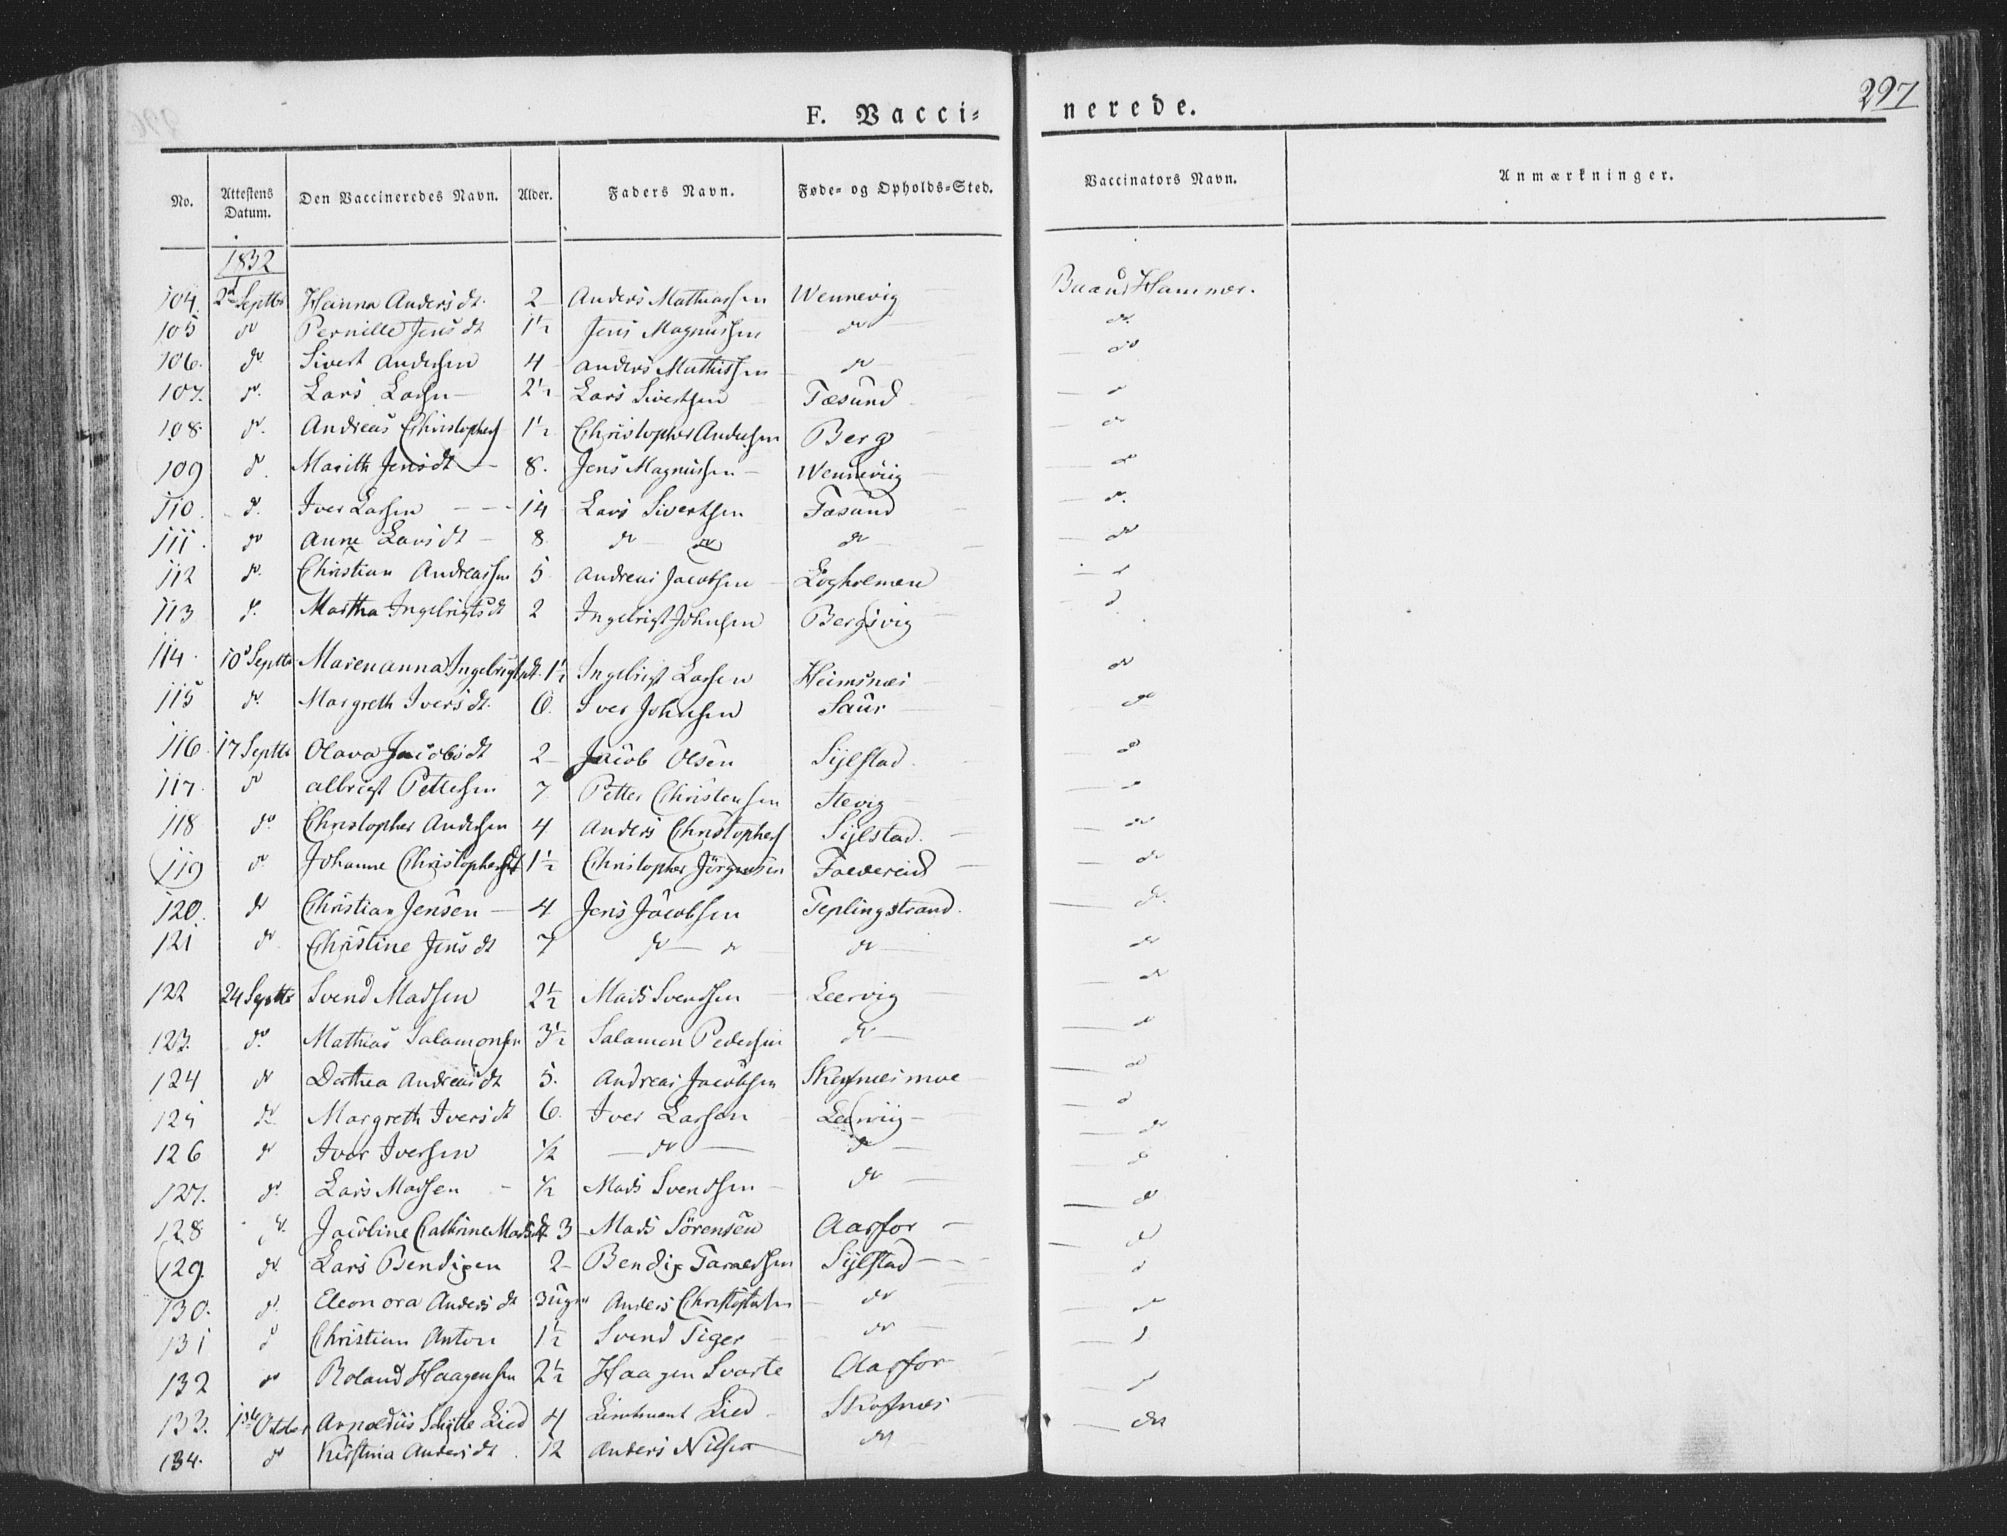 297
F. Vacci= nerede.
No. Attestens Datum. Den Vaccineredes Navn. Alder. Faders Navn. Føde= og Opholds=Sted. Vaccinators Navn. Anmærkninger.
1832
104. 2d Septbr Hanna Andersdt. 2 Anders Mathiassen Wennevig Hammer.
105 do Pernille Jensdt 1½ Jens Magnussen do do
106. do Sivert Andersen 4 Anders Mathissen do do
107. do Lars Larsen 2½ Lars Sivertsen Fæsund do
108 do Andreas Christophers 1½ Christopher Andersen Berg do
109 do Marith Jensdt 8. Jens Magnussen Wenneviig do
110. do Iver Larsen 14 Lars Sivertsen Fæsund do
111. do Anne Larsdt 8 do do do do
112 do Christian Andreassen 5 Andreas Jacobsen Logholmen do
113 do Martha Ingebrigtsdt 2 Ingebrigt Johnsen Bergsvig do
114. 10d Septbr Marenanna Ingebrigtsdt. 1½ Ingebrigt Larsen Heimsnæs do
115 do Margreth Iversdt. 6. Iver Johnsen Saur do
116. 17 Septbr Olava Jacobsdt 2 Jacob Olsen Sylstad do
117. do Albrigt Pettersen 7 Petter Christensen Stevig do
118 do Christopher Andersen 4 Anders Christophers Sylstad. do
119 do Johanne Christophersdt 1½ Christopher Jörgensen Foldereid do
120. do Christian Jensen 4 Jens Jacobsen Teplingstrand. do
121 do Christine Jensdt 7 do do do do
122 24 Septbr Svend Madsen 2½ Mads Svendsen Leervig do
123. do Mathias Salamonsen 3½ Salamon Pedersen do do
124 do Dorthea Andreasdt 5. Andreas Jacobsen do
125 do Margreth Iversdt 6. Iver Larsen Leerviig do
126 do Iver Iversen ½ do do do
127. do Lars Madsen ½ Mads Svendsen do do
128 do Jacobine Cathrine Madsdt 3 Mads Sörensen Aarfor do
129. do Lars Bendixen 2 Bendix Taraldsen Sylstad do
130. do Eleonora Andersdt 3 Uger Anders Christophersen do do
131 do Christian Anton 1½ Svend Tiger do do
132 do Roland Haagensen 2½ Haagen Svarte Aarfor do
133. 1ste Octbr Arnoldus Schytte Lied 4 Lieutnant Lied do
134. do Kirstina Andersdt. 12 Anders Nilsen do